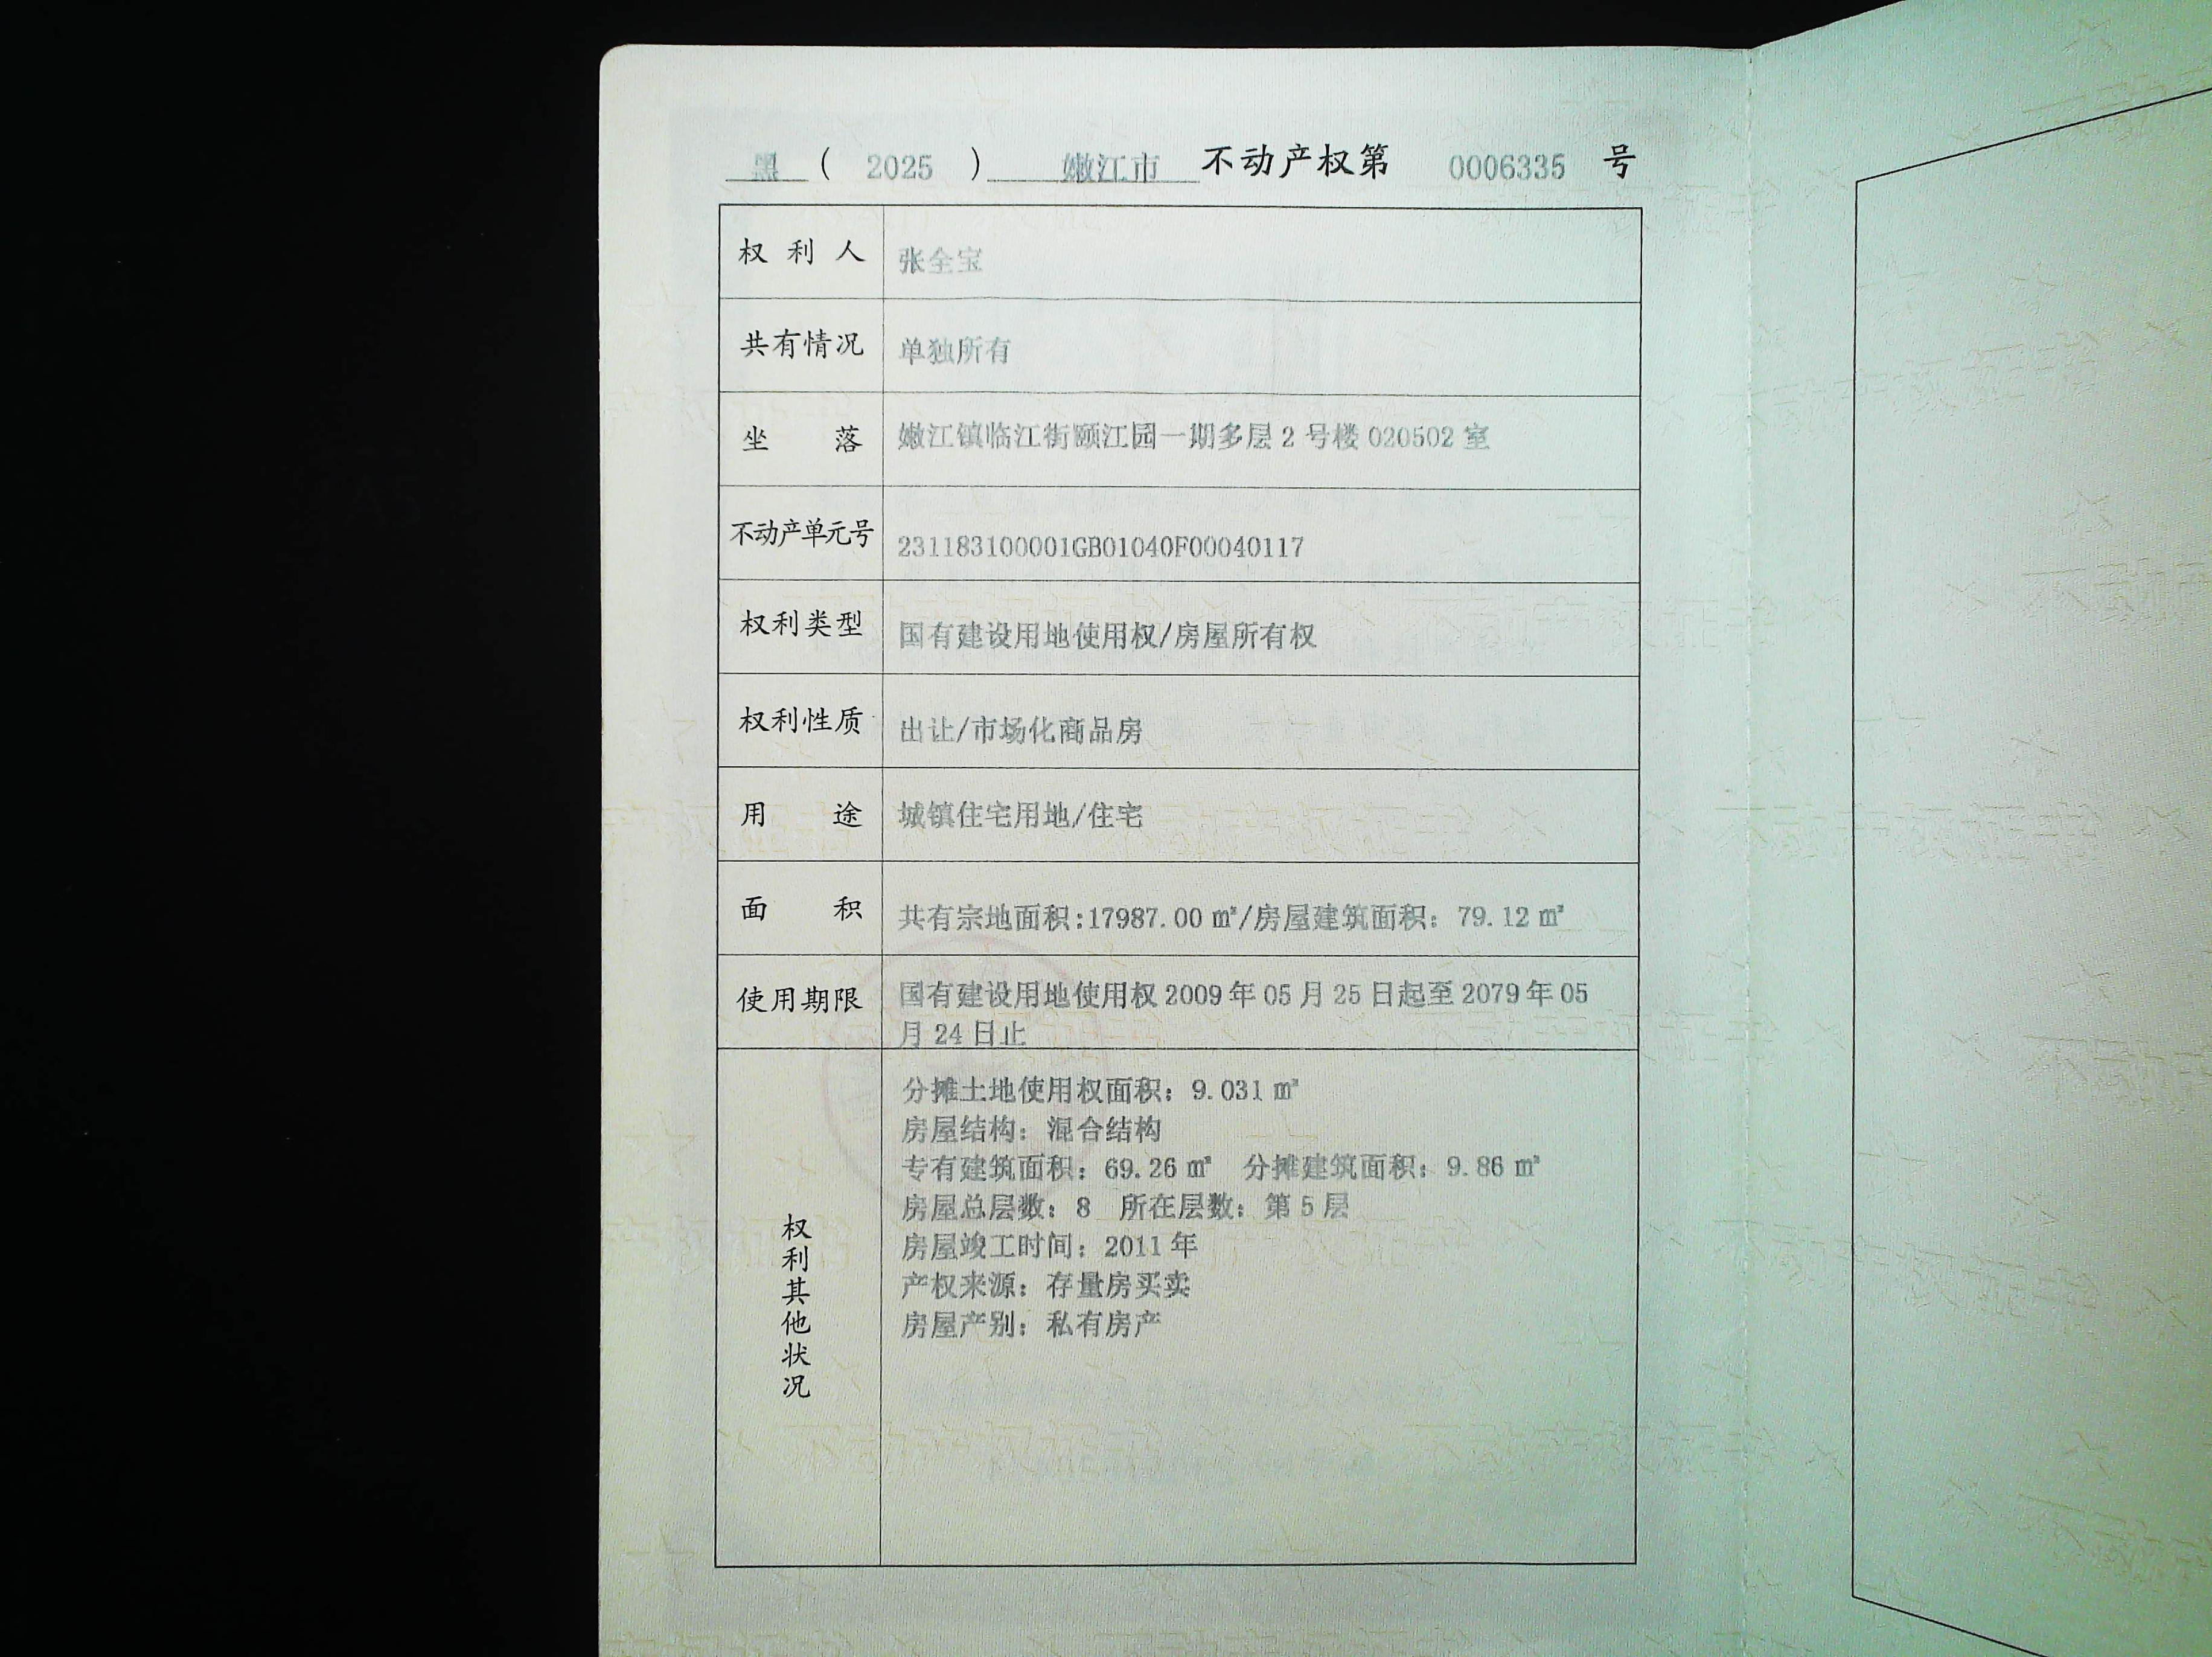 黑 ( 2025 ) 嫩江市 不动产权第 0006335 号
权利人 张全宝
共有情况 单独所有
坐落 嫩江镇临江街颐江园一期多层 2 号楼 020502 室
不动产单元号 231183100001GB01040F00040117
权利类型 国有建设用地使用权/房屋所有权
权利性质 出让/市场化商品房
用途 城镇住宅用地/住宅
面积 共有宗地面积:17987.00 ㎡/房屋建筑面积: 79.12 ㎡
使用期限 国有建设用地使用权 2009 年 05 月 25 日起至 2079 年 05
月 24 日止
权利其他状况
分摊土地使用权面积: 9.031 ㎡
房屋结构: 混合结构
专有建筑面积: 69.26 ㎡ 分摊建筑面积: 9.86 ㎡
房屋总层数: 8 所在层数: 第 5 层
房屋竣工时间: 2011 年
产权来源: 存量房买卖
房屋产别: 私有房产